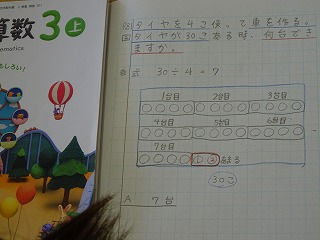 算数3上
ematematics
もしろい!
タイヤを4こ使って車を作る。
タイヤが30こある時、何台でき
ますか。
式 30÷4=7
1台目 2台目 3台目
4台目 5台目 6台目
7台目
あまる
30こ
A 7台